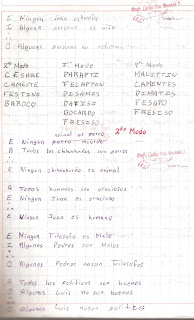 E Ningun niño estudia
I Alguna persona es niño
O Algunas personas no estudian
2º Modo 3º Modo 4º Modo
CESARE DARAPTI MALEFTIN
CAMENTE FELAPTON CAMENTES
FESTINO DESAMES DIMATES
BAROCO DATISI FESAPO
BOCARDO FRESISO
FRESISO
animal es perro 2do Modo
E Ningun perro muerde
A Todos los chihuahueños son perros
E Ningun chihuahueño es animal
A Todos humanos son graciosos
E Ningun Juan es gracioso
E Ningun Juan es humano
E Ningun Filosofo es Malo
I Algunos Pedros son Malos
O Algunos Pedros no son Filosofos
A Todos los politicos son buenos
O Algunos Luis no son buenos
O Algunos Luis no son politicos